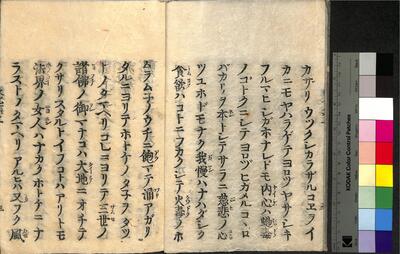 カサリウツクシカラサルコヱライ
カニモヤハラケテヨロツヤサシキ
フルマヒシガホナレドモ内心ハ
ノコトクニシテヨロツヒガメルコヽロ
バカリヲホトヒテサラニ慈悲ノ心
ツユホドモナク我慢ハナハダシク
貪欲ハコトニフカクシテ火毒ノホ
ムラムネノウチニ アガリ
タルニヨリテホトケノタ子ヲタツ
トノタマヘリコレニヨリテ三世ノ
諸佛ノ御マナコハ大地ニオチテ
クサリスタルトイフコトハアリトモ
法界ノ女人ハナカクホトケニナ
ラストノタマヘリアルヒハ又フク風
KODAK Color Control Patches